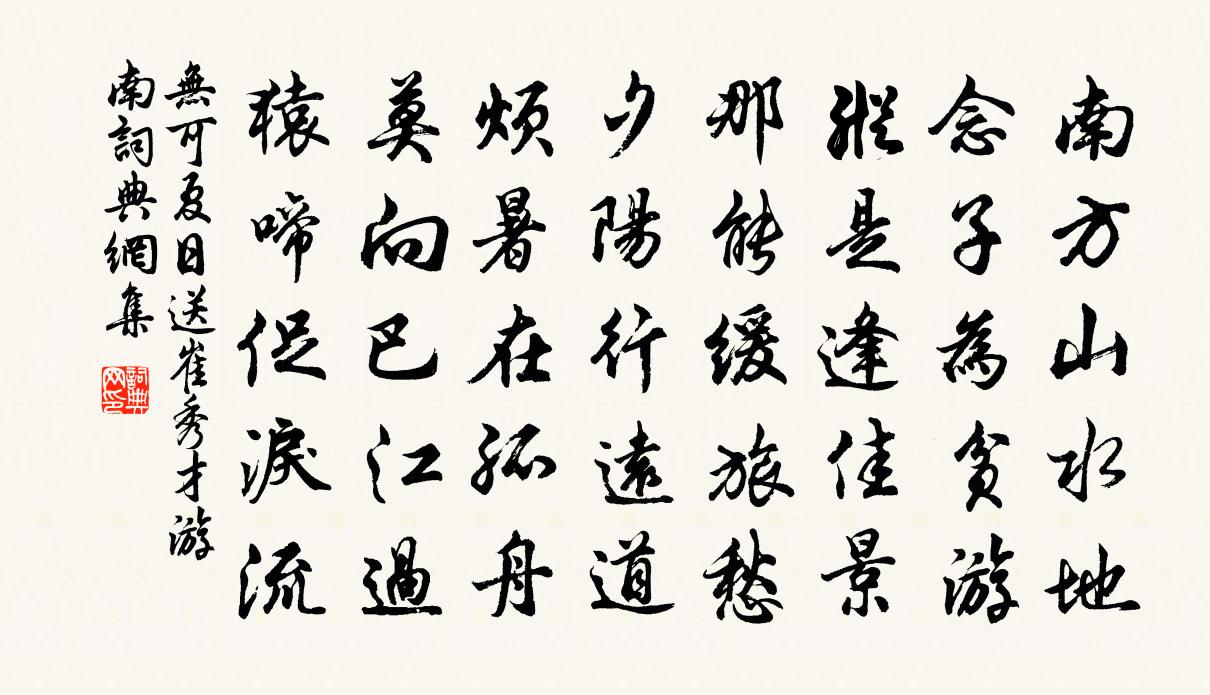 南方山水地
念子為貧游
縱是逢佳景
那能緩旅愁
夕陽行遠道
煩暑在孤舟
莫向巴江過
猿啼促淚流
無可夏日送崔秀才游
南詞典網集
詞典网印